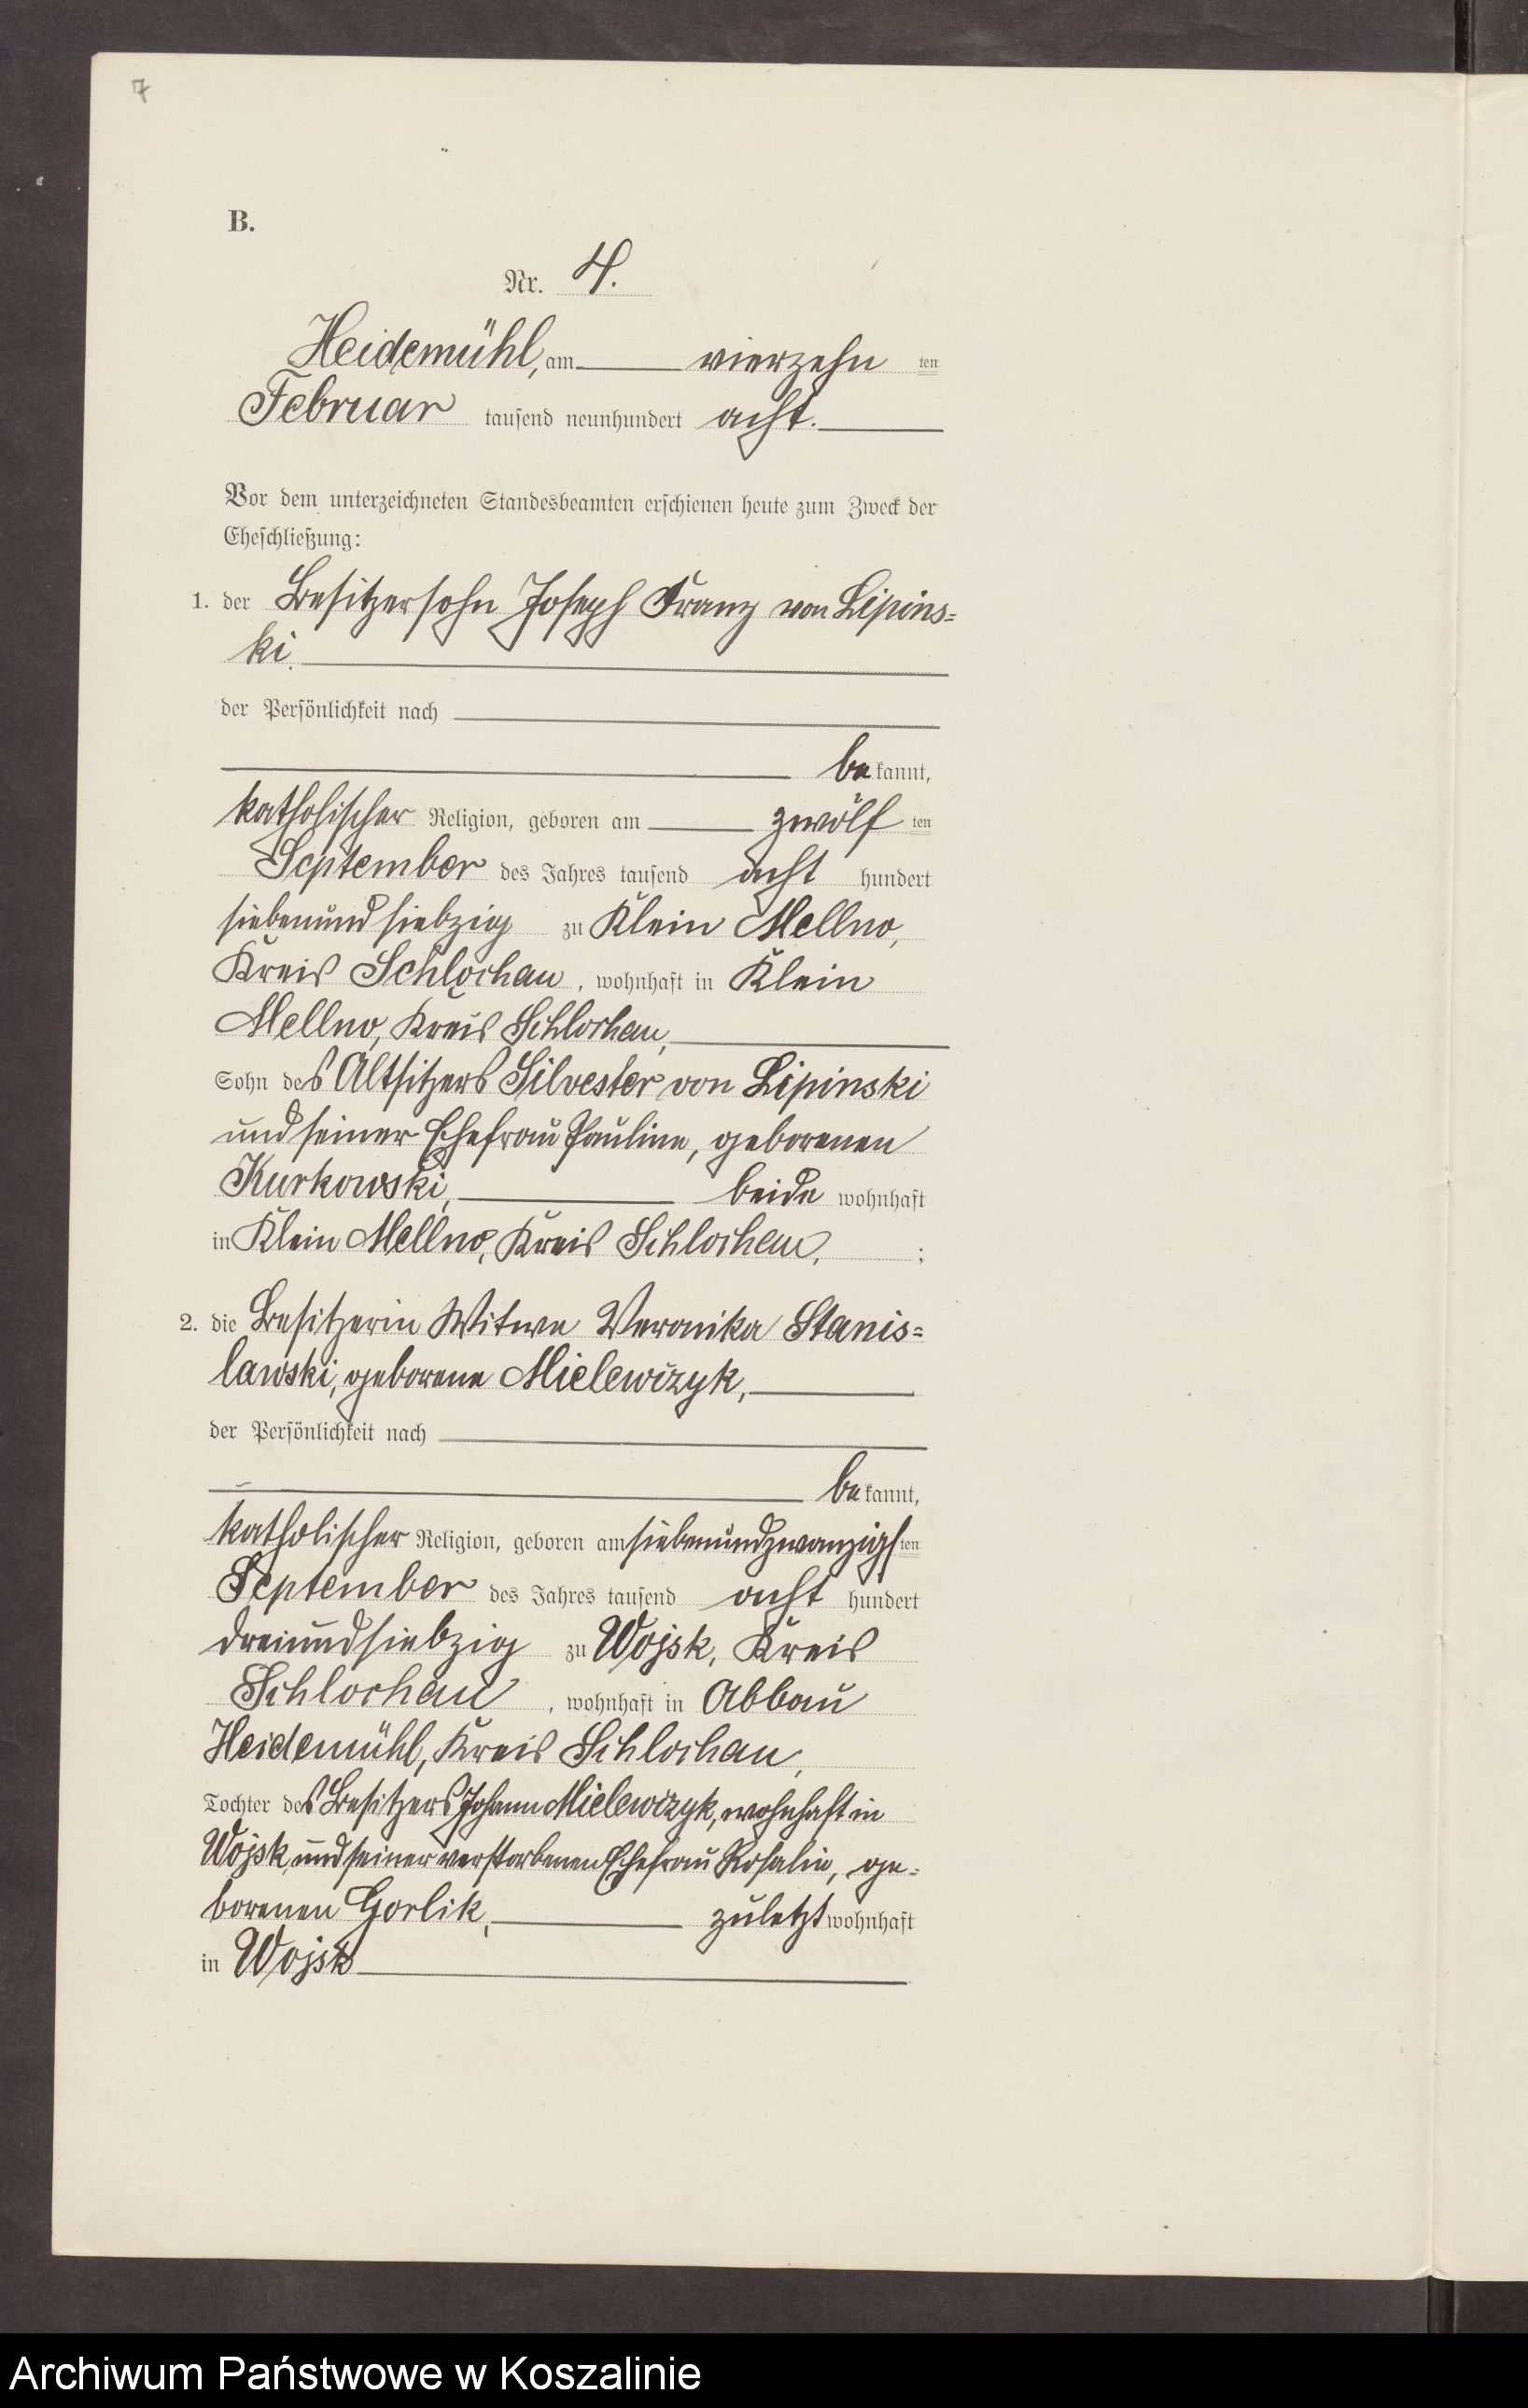 7
B.
Nr. 4.
Heidemühl, am vierzehn ten
Februar tausend neunhundert acht.
Vor dem unterzeichneten Standesbeamten erschienen heute zum Zweck der
Eheschließung:
1. der Besitzersohn Joseph Franz von Lipins=
ki
der Persönlichkeit nach
be kannt,
katholischer Religion, geboren am zwölf ten
September des Jahres tausend acht hundert
siebenundsiebzig zu Klein Mellno,
Kreis Schlochau, wohnhaft in Klein
Mellno, Kreis Schlochau,
Sohn des Altsitzers Silvester von Lipinski
und seiner Ehefrau Pauline, geborenen
Kurkowski, beide wohnhaft
in Klein Mellno, Kreis Schlochau, ;
2. die Besitzerin Witwe Veronika Stanis=
lawski, geborene Mielewczyk,
der Persönlichkeit nach
be kannt,
katholischer Religion, geboren am siebenundzwanzigsten
September des Jahres tausend acht hundert
dreiundsiebzig zu Wojsk, Kreis
Schlochau, wohnhaft in Abbau
Heidemühl, Kreis Schlochau,
Tochter des Besitzers Johann Mielewczyk, wohnhaft in
Wojsk, und seiner verstorbenen Ehefrau Rosalie, ge=
borenen Gorlik, zuletzt wohnhaft
in Wojsk
Archiwum Państwowe w Koszalinie